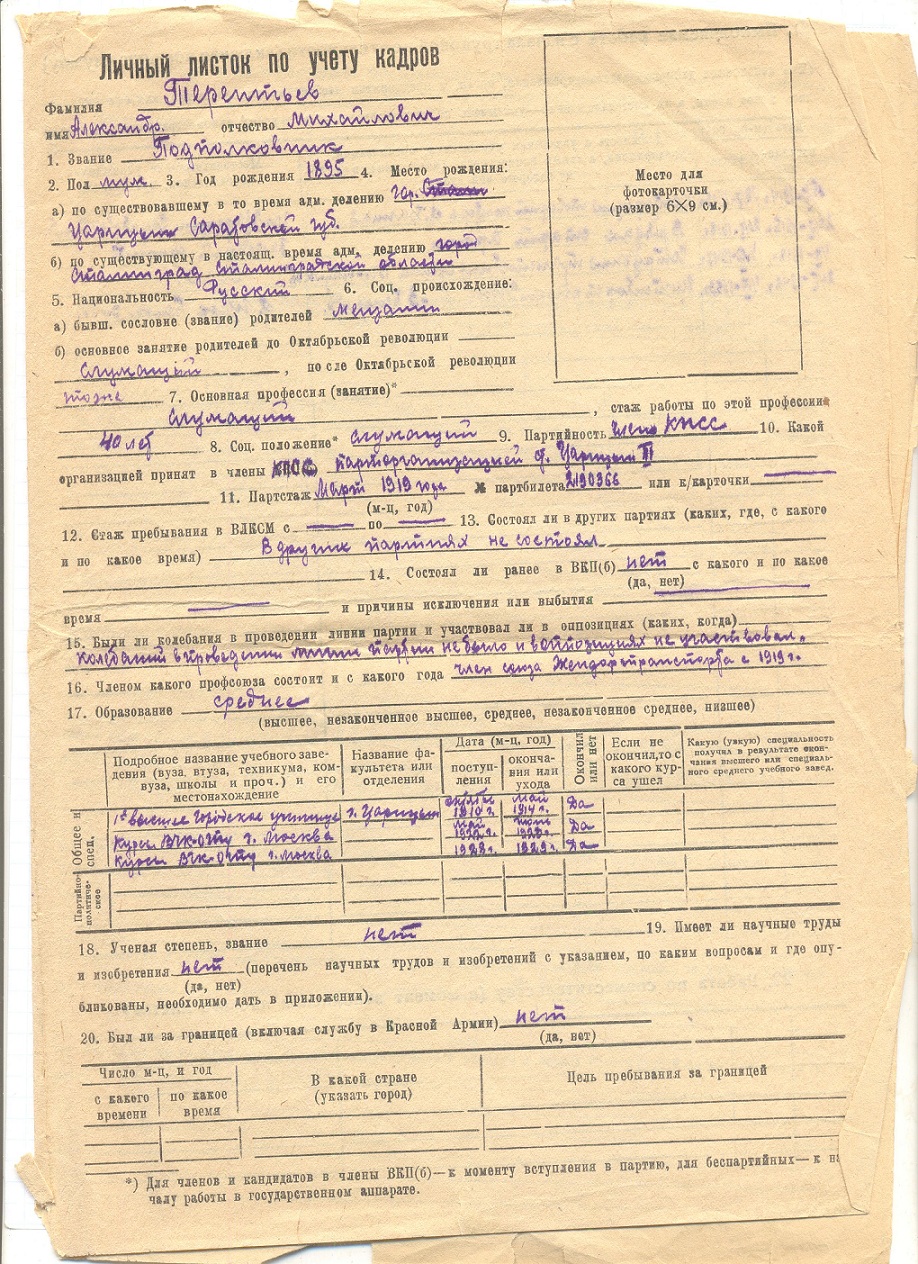 Личный листок по учету кадров
Фамилия Терентьев
имя Александр. отчество Михайлович
1. Звание Подполковник
2. Пол муж. 3. Год рождения 1895 4. Место рождения:
а) по существовавшему в то время адм. делению гор.
Царицын Саратовской губ.
б) по существующему в настоящ. время адм. делению город
Сталинград Сталинградской области
5. Национальность Русский 6. Соц. происхождение:
а) бывш. сословие (звание) родителей мещанин
б) основное занятие родителей до Октябрьской революции
служащий, после Октябрьской революции
тоже 7. Основная профессия (занятие)*
служащий, стаж работы по этой профессии
40 лет 8. Соц. положение* служащий 9. Партийность член КПСС 10. Какой
организацией принят в члены КПСС парторганизацией ст. Царицын II
11. Партстаж Март 1919 года № партбилета 2190366 или к/карточки
(м-ц, год)
12. Стаж пребывания в ВЛКСМ с — по — 13. Состоял ли в других партиях (каких, где, с какого
и по какое время) В других партиях не состоял
14. Состоял ли ранее в ВКП(б) нет с какого и по какое
(да, нет)
время — и причины исключения или выбытия —
15. Были ли колебания в проведении линии партии и участвовал ли в оппозициях (каких, когда)
колебаний в проведении линии партии не было и в оппозициях не участвовал.
16. Членом какого профсоюза состоит и с какого года член союза Жендортранспорта с 1919 г.
17. Образование среднее
(высшее, незаконченное высшее, среднее, незаконченное среднее, низшее)
Подробное название учебного заведения (вуза, втуза, техникума, комвуза, школы и проч.) и его местонахождение
Название факультета или отделения
Дата (м-ц, год)
поступления
окончания или ухода
Окончил или нет
Если не окончил, то с какого курса ушел
Какую (узкую) специальность получил в результате окончания высшего или специального среднего учебного завед.
Общее и спец.
1е высшее Городское училище г. Царицын 1910 г. май 1914 г. Да
Курсы ВЧК-ОГПУ г. Москва май 1922 г. Да
Курсы ВЧК-ОГПУ г. Москва 1928 г. 1929 г. Да
Партийно-политическое
18. Ученая степень, звание нет 19. Имеет ли научные труды
и изобретения нет (перечень научных трудов и изобретений с указанием, по каким вопросам и где опу-
(да, нет)
бликованы, необходимо дать в приложении).
20. Был ли за границей (включая службу в Красной Армии) нет
(да, нет)
Число м-ц, и год
с какого времени
по какое время
В какой стране (указать город)
Цель пребывания за границей
*) Для членов и кандидатов в члены ВКП(б)—к моменту вступления в партию, для беспартийных—к на
чалу работы в государственном аппарате.
Место для
фотокарточки
(размер 6×9 см.)